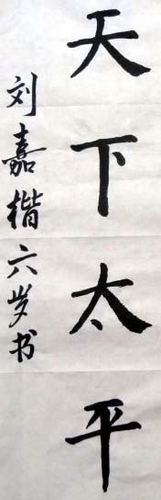 天下太平
刘嘉楷六岁书